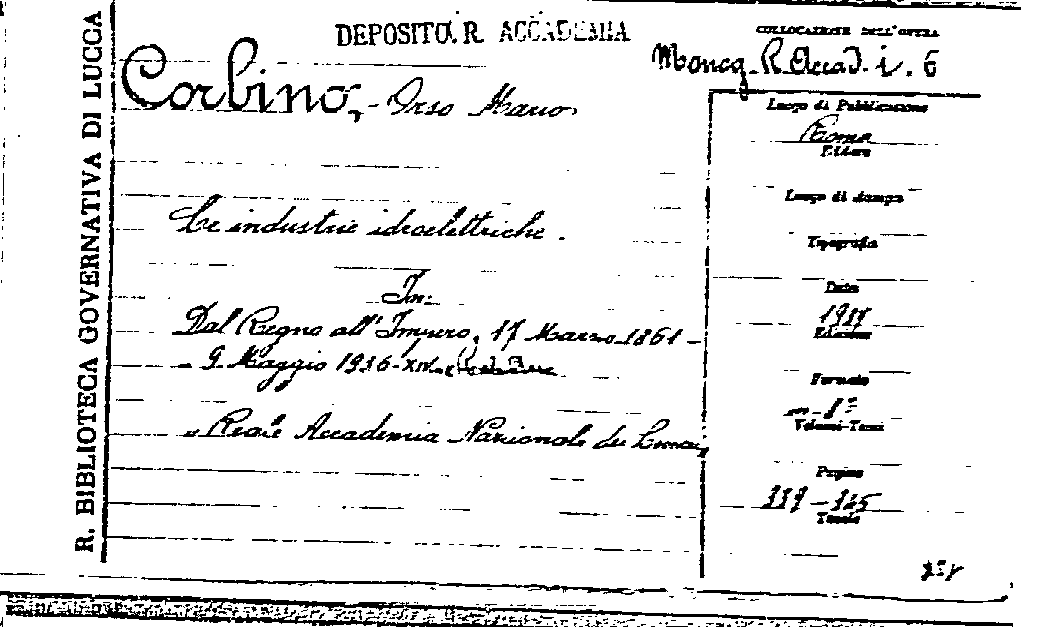 R. BIBLIOTECA GOVERNATIVA DI LUCCA
DEPOSITO R. ACCADEMIA
COLLOCAZIONE DELL'OPERA
Moncg. R. Accad. i. 6
Corbino, - Orso Mario
Le industrie idroelettriche.
In:
Dal Regno all'Impero, 17 Marzo 1861 -
- 9 Maggio 1936 - XIV.
Reale Accademia Nazionale dei Lincei,
Luogo di Pubblicazione
Roma
Editore
Luogo di stampa
Tipografia
Data
1937
Edizione
Formato
in-8º
Volumi-Tomi
Pagine
Tavole